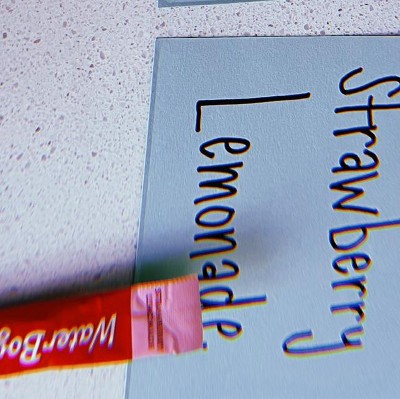 Strawberry
Lemonade
WaterBoy